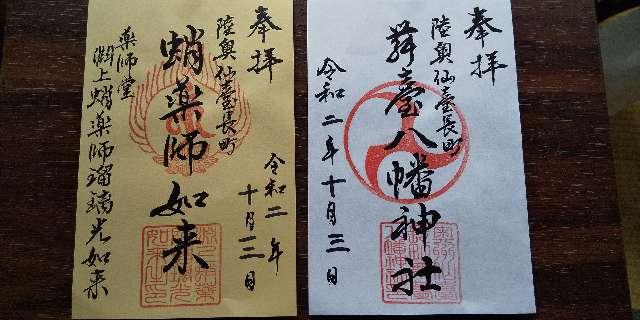 奉拝
陸奥仙臺長町
舞臺八幡神社
令和二年十月三日
奉拝
陸奥仙臺長町
蛸薬師如来
令和二年
十月三日
薬師堂
渕上蛸薬師瑠璃光如来